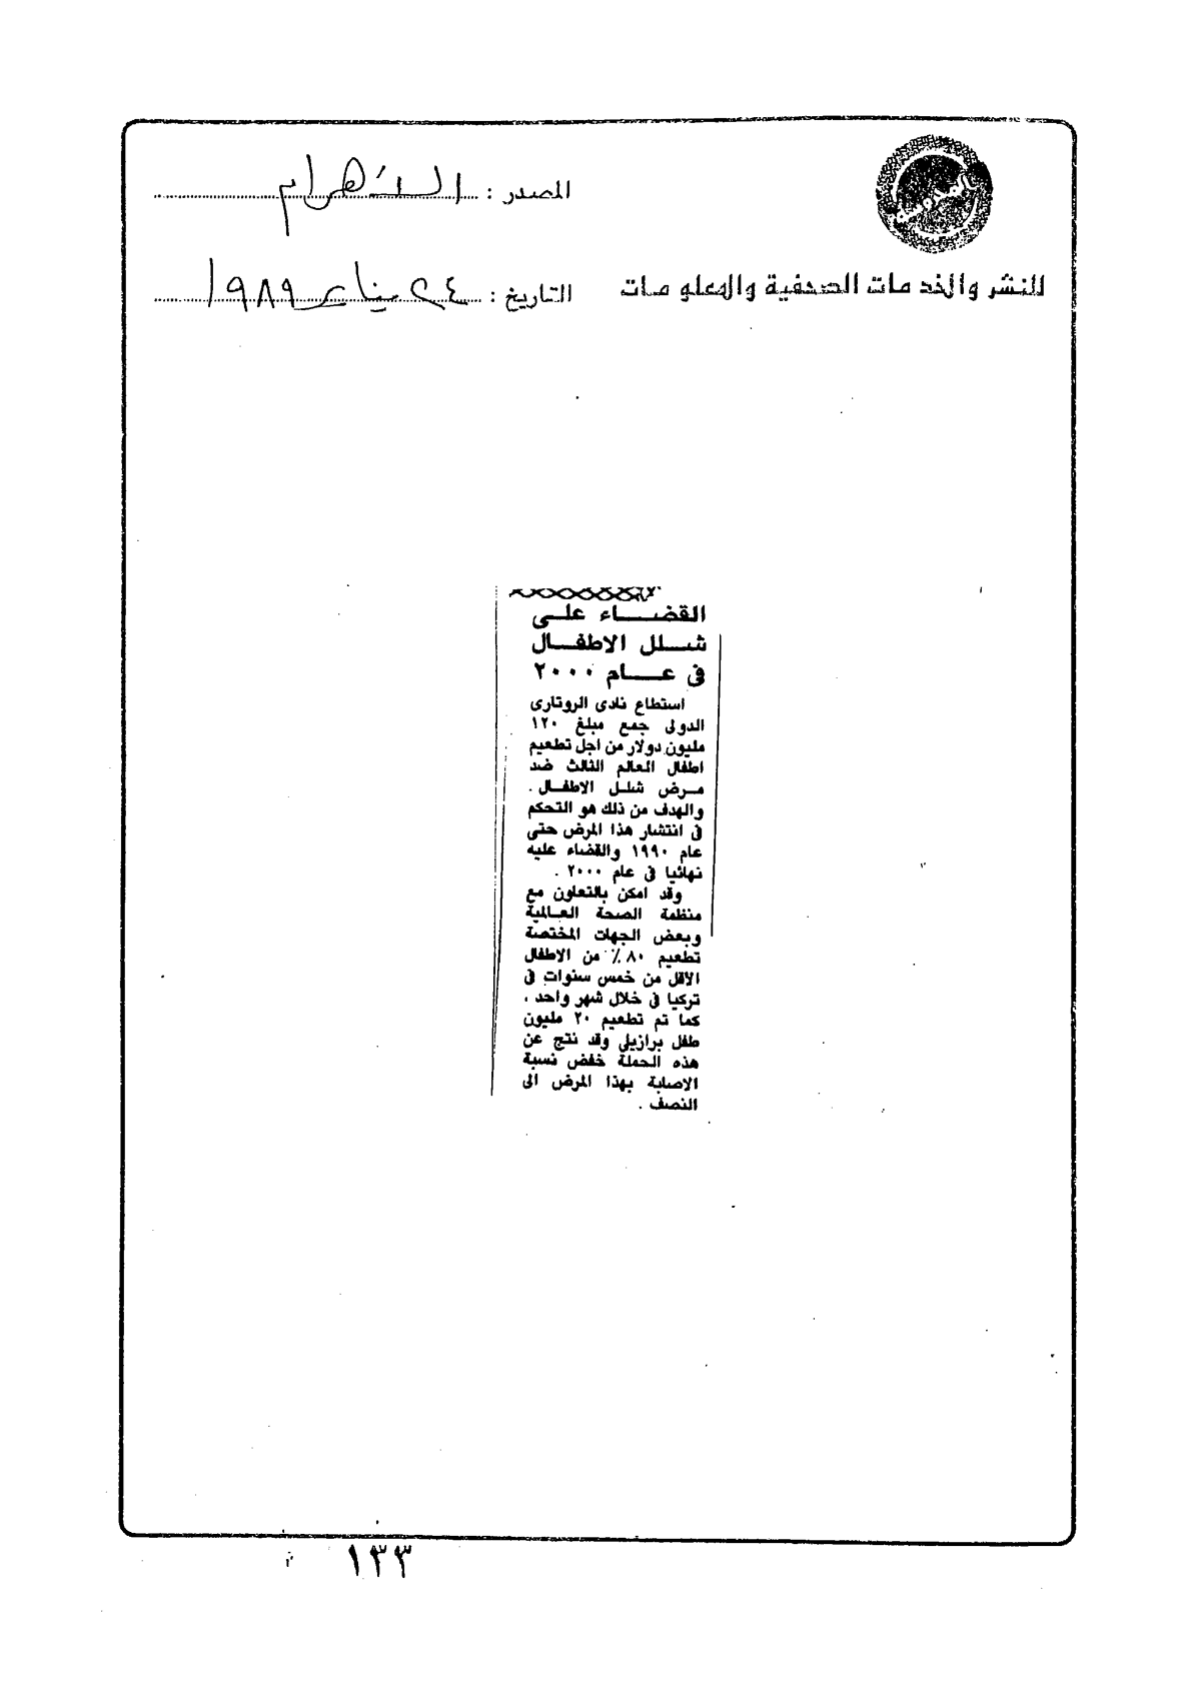 المصدر : الأهرام
للنشر والخدمات الصحفية والمعلومات
التاريخ : ٢٤ يناير ١٩٨٩
القضاء على
شلل الاطفال
فى عام ٢٠٠٠
استطاع نادى الروتارى
الدولى جمع مبلغ ١٢٠
مليون دولار من اجل تطعيم
اطفال العالم الثالث ضد
مرض شلل الاطفال .
والهدف من ذلك هو التحكم
فى انتشار هذا المرض حتى
عام ١٩٩٠ والقضاء عليه
نهائيا فى عام ٢٠٠٠ .
وقد امكن بالتعاون مع
منظمة الصحة العالمية
وبعض الجهات المختصة
تطعيم ٨٠٪ من الاطفال
الأقل من خمس سنوات فى
تركيا فى خلال شهر واحد ،
كما تم تطعيم ٢٠ مليون
طفل برازيلى وقد نتج عن
هذه الحملة خفض نسبة
الاصابة بهذا المرض الى
النصف .
١٣٣